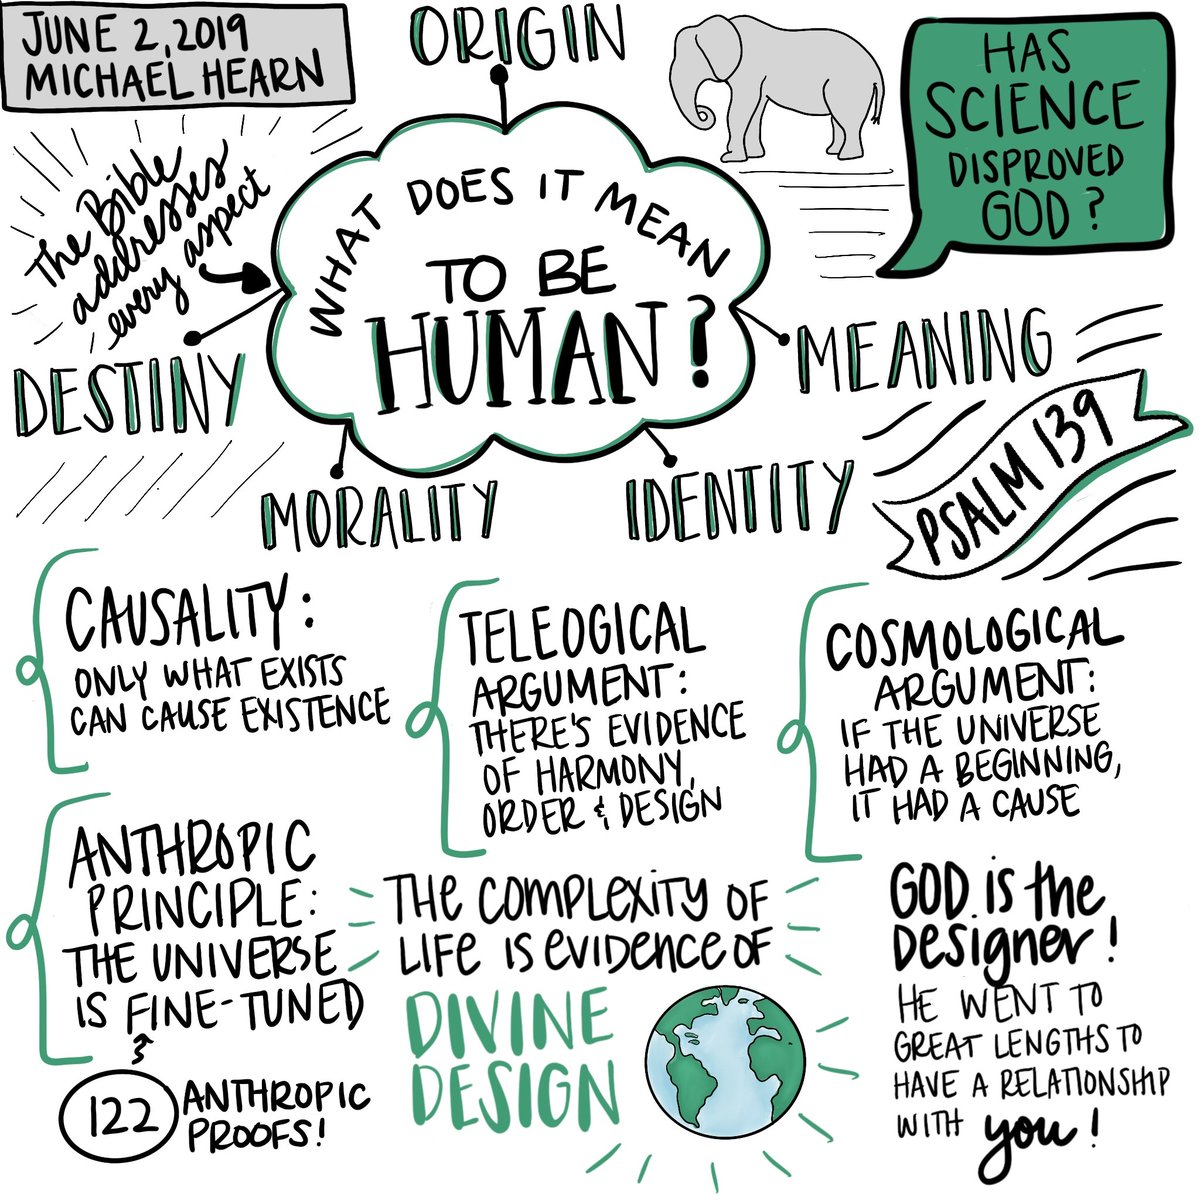 JUNE 2, 2019
MICHAEL HEARN
ORIGIN
HAS
SCIENCE
DISPROVED
GOD?
The Bible
addresses
every aspect
WHAT DOES IT MEAN
TO BE
HUMAN?
DESTINY
MEANING
MORALITY
IDENTITY
PSALM 139
CAUSALITY:
ONLY WHAT EXISTS
CAN CAUSE EXISTENCE
TELEOGICAL
ARGUMENT:
THERE'S EVIDENCE
OF HARMONY,
ORDER & DESIGN
COSMOLOGICAL
ARGUMENT:
IF THE UNIVERSE
HAD A BEGINNING,
IT HAD A CAUSE
ANTHROPIC
PRINCIPLE:
THE UNIVERSE
IS FINE-TUNED
122 ANTHROPIC
PROOFS!
THE COMPLEXITY OF
LIFE IS EVIDENCE OF
DIVINE
DESIGN
GOD is the
Designer!
HE WENT TO
GREAT LENGTHS TO
HAVE A RELATIONSHIP
WITH you!